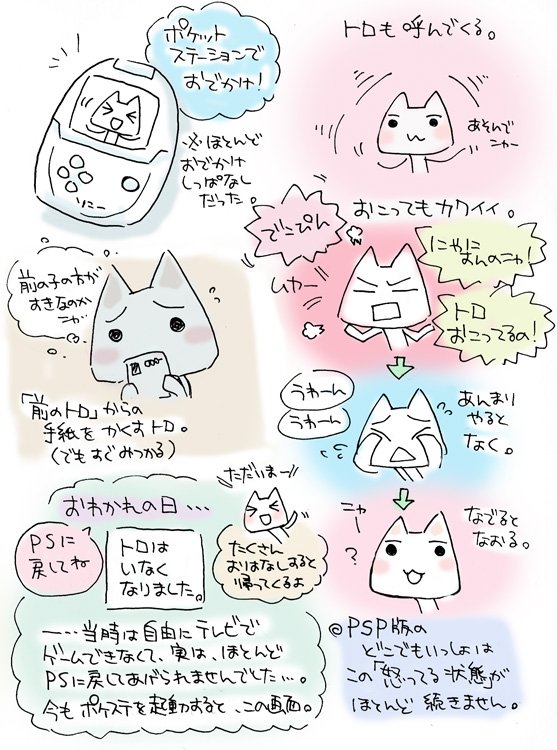 ポケット
ステーションで
おでかけ!
ソニー
※ほとんど
おでかけ
しっぱなし
だった。
前の子の方が
すきなのか
ニャ…
「前のトロ」からの
手紙をかくすトロ。
(でもすぐみつかる)
おわかれの日…
PSに
戻してね
トロは
いなく
なりました。
ただいまー!!
たくさん
おはなしすると
帰ってくるよ
ー…当時は自由にテレビで
ゲームできなくて、実は、ほとんど
PSに戻してあげられませんでした…。
今もポケステを起動すると、この画面。
トロも呼んでくる。
あそんで
ニャー
おこってもカワイイ。
でこぴん
ムカー
にゃに
すんのニャ!
トロ
おこってるの!
うわーん
うわーん
あんまり
やると
なく。
ニャー
?
なでると
なおる。
◎PSP版の
どこでもいっしょは
この「怒ってる状態」が
ほとんど続きません。